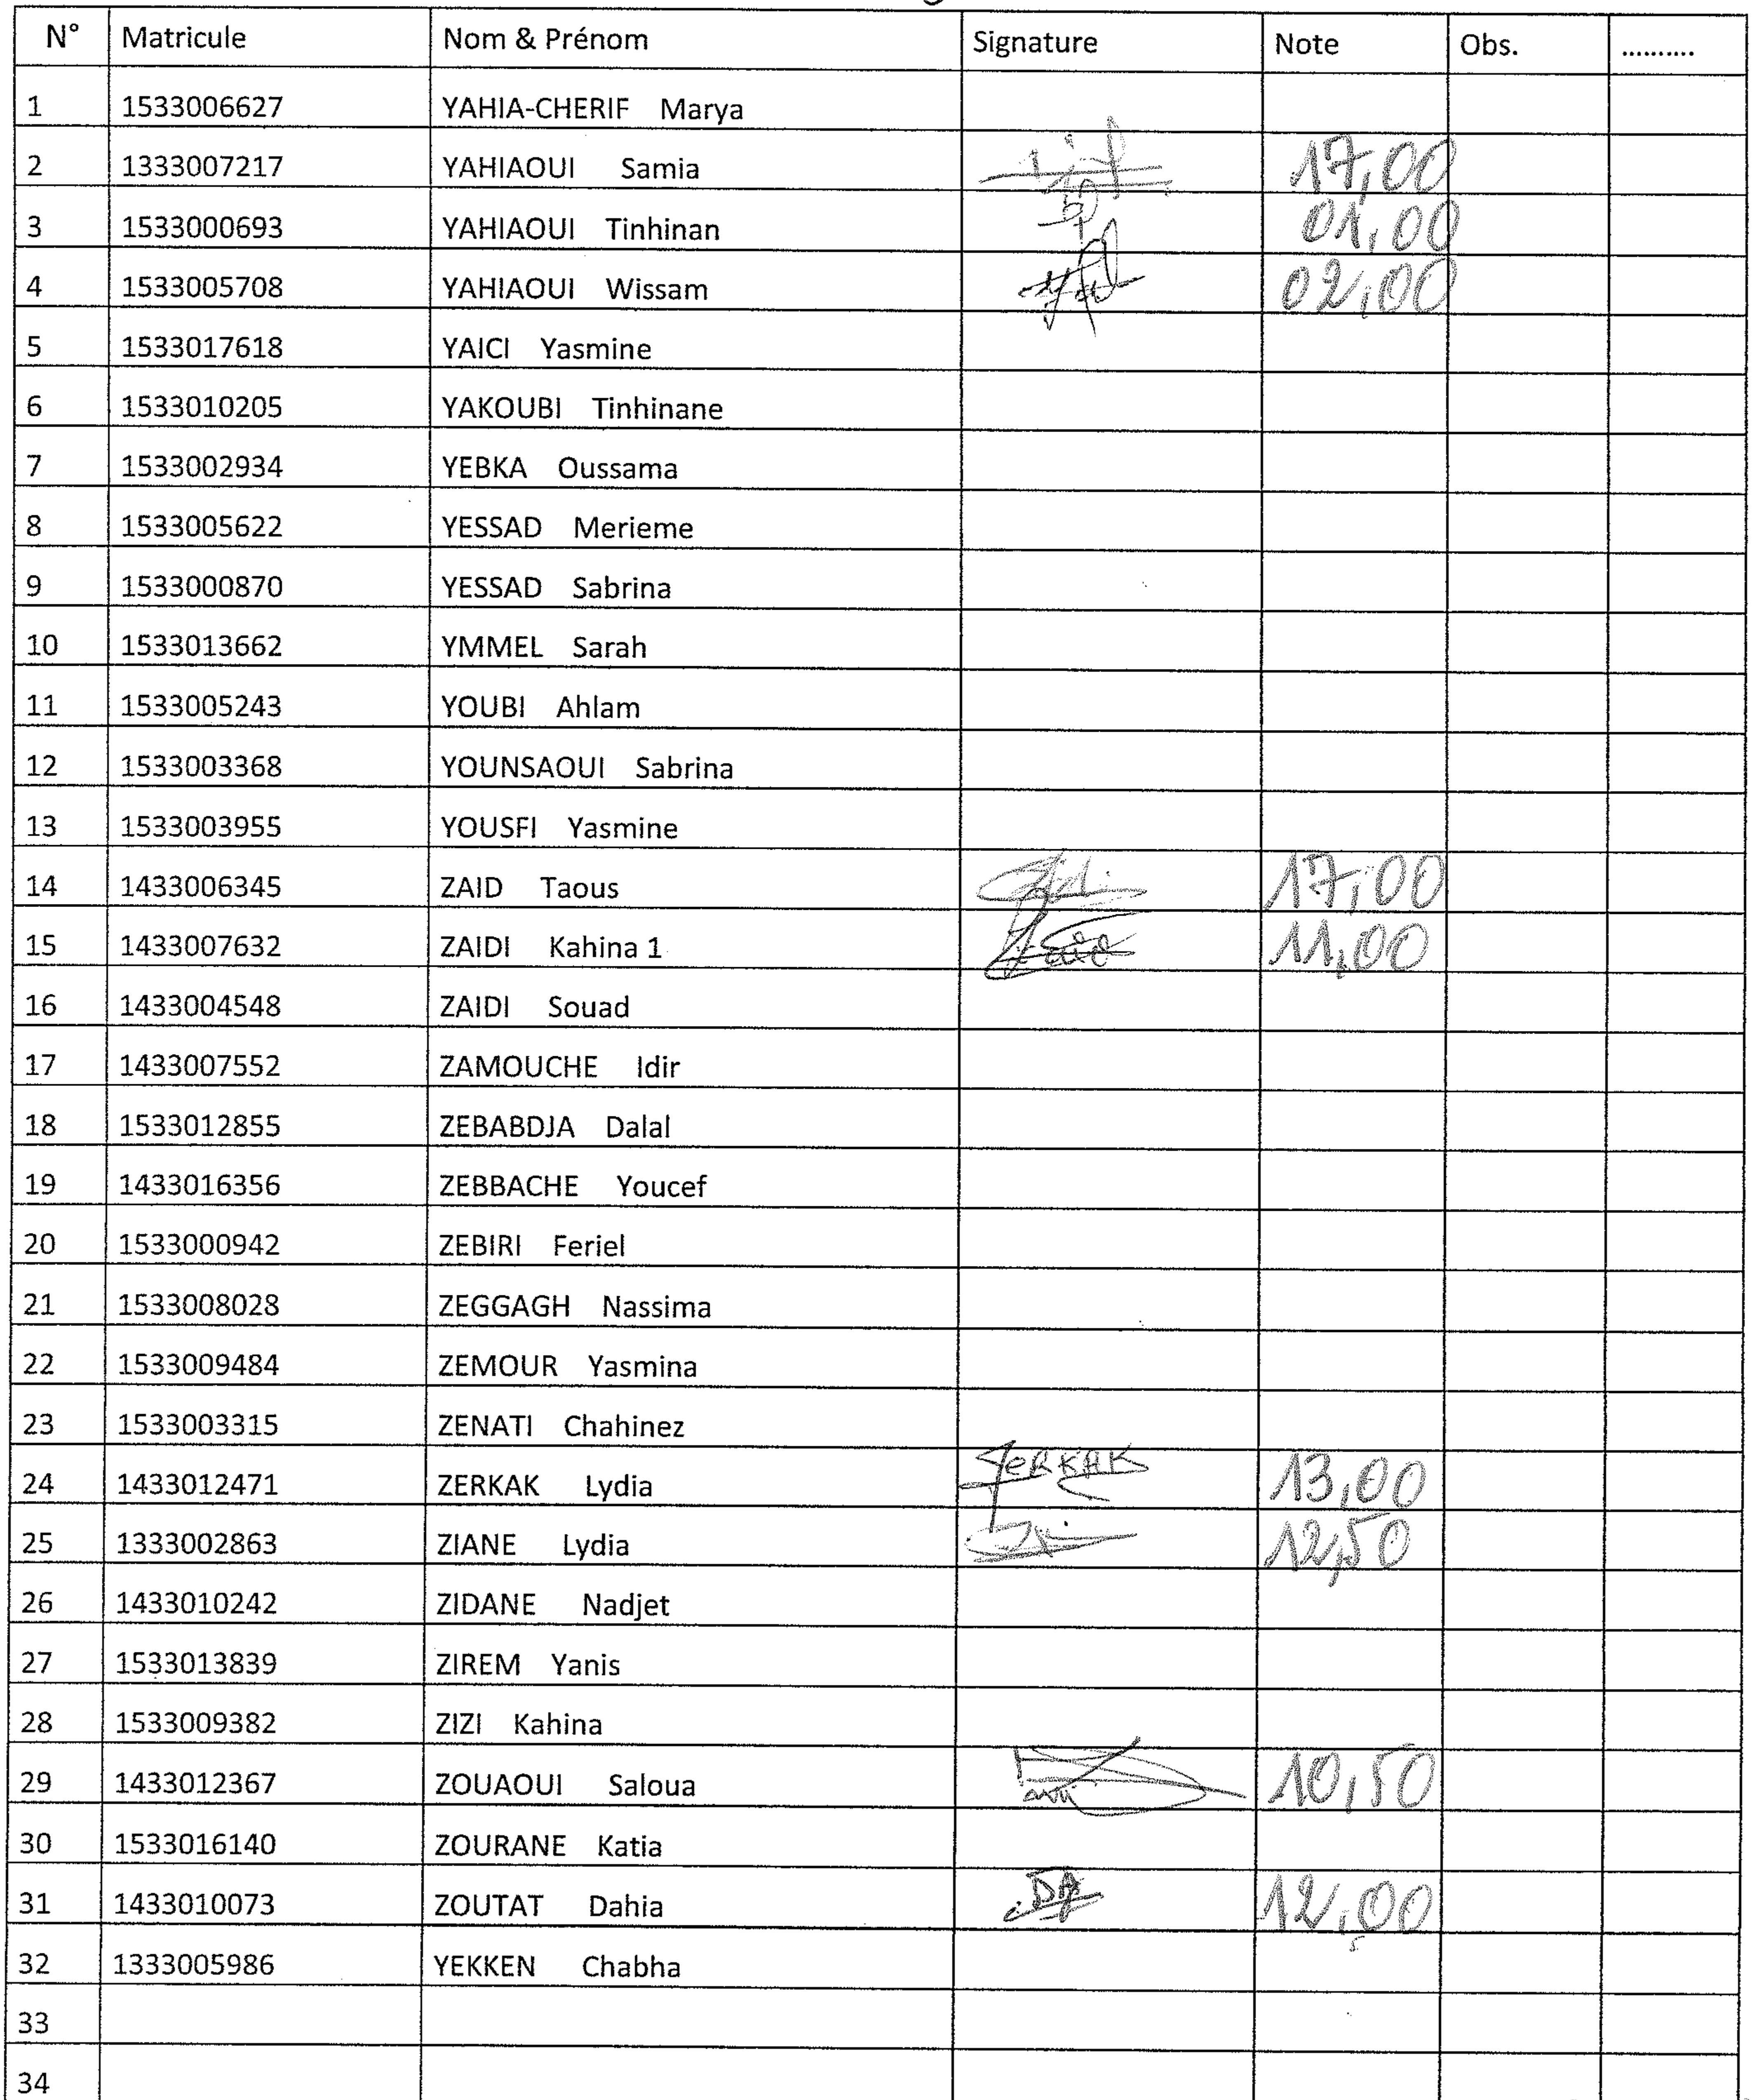 N° Matricule Nom & Prénom Signature Note Obs. ..........
1 1533006627 YAHIA-CHERIF Marya
2 1333007217 YAHIAOUI Samia 17,00
3 1533000693 YAHIAOUI Tinhinan 01,00
4 1533005708 YAHIAOUI Wissam 02,00
5 1533017618 YAICI Yasmine
6 1533010205 YAKOUBI Tinhinane
7 1533002934 YEBKA Oussama
8 1533005622 YESSAD Merieme
9 1533000870 YESSAD Sabrina
10 1533013662 YMMEL Sarah
11 1533005243 YOUBI Ahlam
12 1533003368 YOUNSAOUI Sabrina
13 1533003955 YOUSFI Yasmine
14 1433006345 ZAID Taous 17,00
15 1433007632 ZAIDI Kahina 1 11,00
16 1433004548 ZAIDI Souad
17 1433007552 ZAMOUCHE Idir
18 1533012855 ZEBABDJA Dalal
19 1433016356 ZEBBACHE Youcef
20 1533000942 ZEBIRI Feriel
21 1533008028 ZEGGAGH Nassima
22 1533009484 ZEMOUR Yasmina
23 1533003315 ZENATI Chahinez
24 1433012471 ZERKAK Lydia ZeRKAK 13,00
25 1333002863 ZIANE Lydia 12,50
26 1433010242 ZIDANE Nadjet
27 1533013839 ZIREM Yanis
28 1533009382 ZIZI Kahina
29 1433012367 ZOUAOUI Saloua 10,50
30 1533016140 ZOURANE Katia
31 1433010073 ZOUTAT Dahia 12,00
32 1333005986 YEKKEN Chabha
33
34